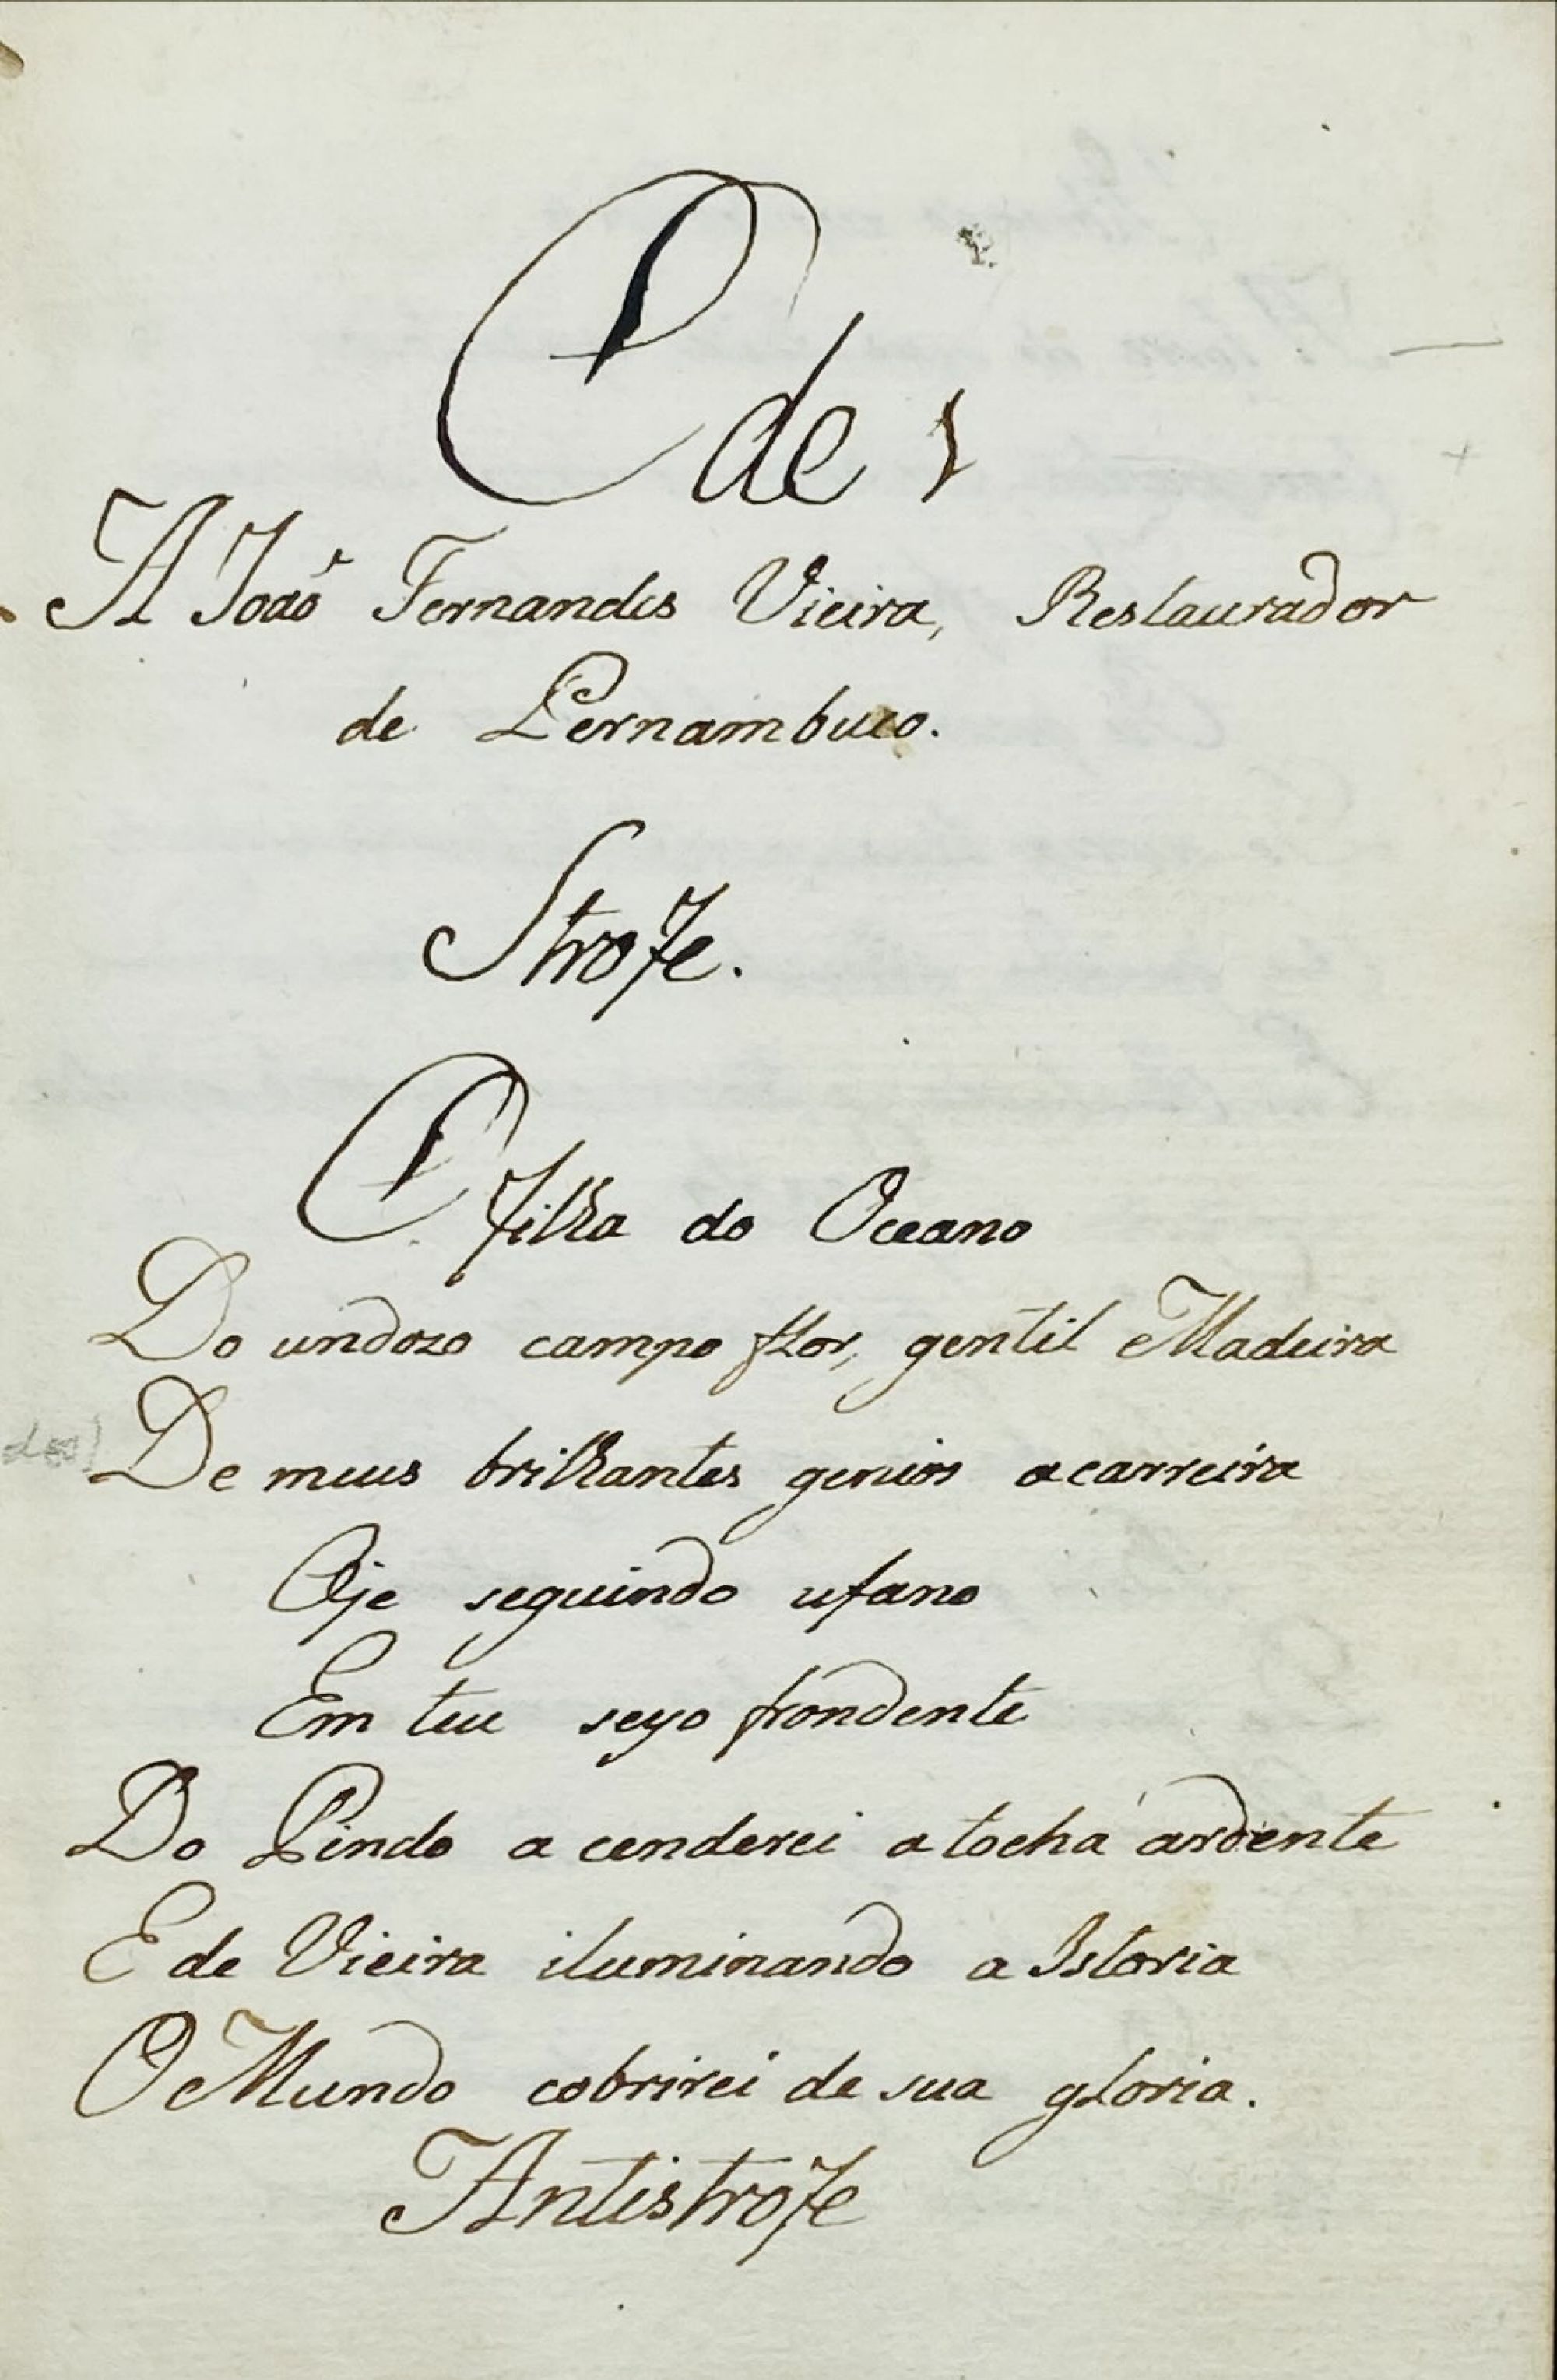 Ode 1
A Joaõ Fernandes Vieira, Restaurador
de Pernambuco.
Strofe.
O filha do Oceano
Do undozo campo flor, gentil Madeira
De meus brilhantes genios acarreira
Oje seguindo ufano
Em teu seyo frondente
Do Pindo a cenderei a tocha ardente
E de Vieira iluminando a Istoria
O Mundo cobrirei de sua gloria.
Antistrofe